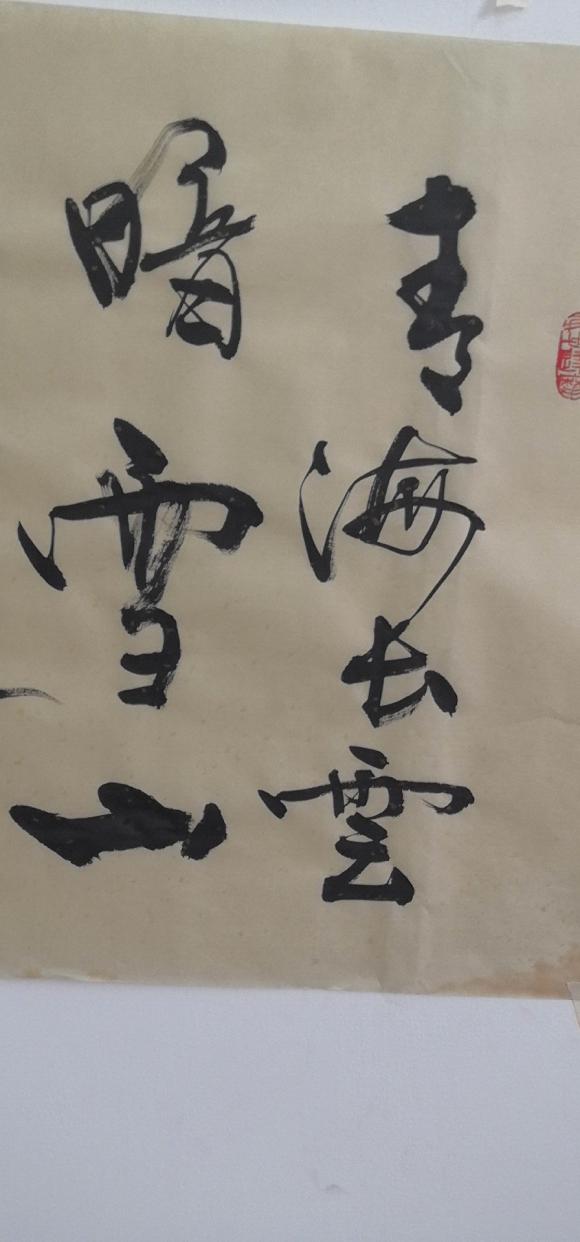 青海长雲
暗雪山